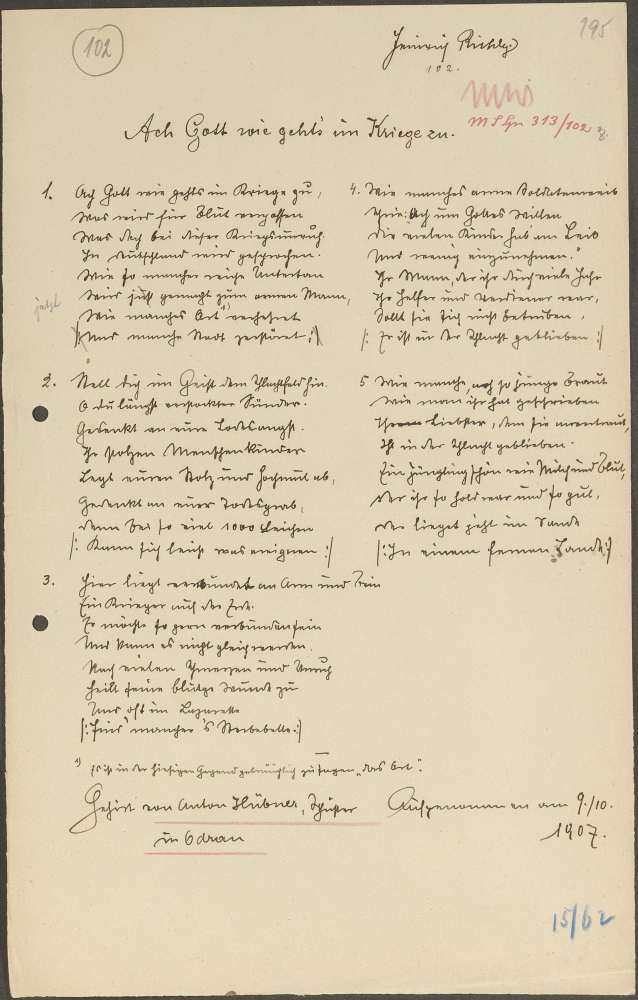 102
195
Heinrich
102.
MS Gr 313/102
Ach Gott wie geht's im Kriege zu.
1. Ach Gott wie gehts im Kriege zu,
Was wird für Blut vergossen
Was doch bei dieser Kriegsunruh
In Deutschland wird gesprochen.
Wie so mancher reiche Untertan
Wird jetzt gemacht zum armen Mann,
jetzt
Wie manches Ort verheeret
Und manche Stadt zerstöret :|
2. Stell dich im Geist dem Schlachtfeld hin
O du längst verstockter Sünder.
Gedenkt an eure Todesangst.
Ihr stolzen Menschenkinder
Legt euren Stolz und Hochmut ab,
Gedenkt an euer Todesgrab,
Denn bei so viel 1000 Leichen
|: Kann sich leicht was ereignen :|
3. Hier liegt verwundet an Arm und Bein
Ein Krieger auf der Erde.
Er möchte so gern verbunden sein
Und kann es nicht gleich werden.
Nach vielen Schmerzen und Unruh
Heilt seine blutge Wunde zu
Und oft im Lazarette
|: Sind mancher's Sterbebette :|
4. Wie manches arme Soldatenweib
Schrie: Ach um Gottes Willen
Die vielen Kinder hab am Leib
Und wenig einzunehmen."
Ihr Mann, der ihr durch viele Jahr
Ihr Helfer und Verdiener war,
Sollt sie sich nicht betrüben,
|: Er ist in der Schlacht geblieben :|
5 Wie manche, noch so junge Braut
Wie man ihr hat geschrieben
Ihr Liebster, dem sie anvertraut,
Ist in der Schlacht geblieben.
Ein Jüngling schön wie Milch und Blut,
Der ihr so hold war und so gut,
Der lieget jetzt im Sande
|: In einem fernen Lande :|
1) Es ist in der hiesigen Gegend gebräuchlich zu sagen „das Ort".
Gehört von Anton Hübner, Schuster
in Odrau
Aufgenommen am 9./10.
1907.
15/62